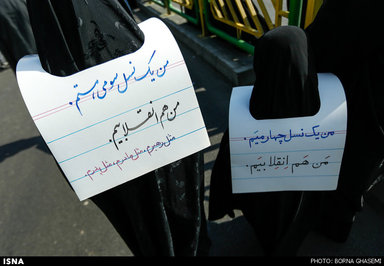 من یک نسل سومی هستم.
من هم انقلابیم.
مثل رهبرم، مثل مادرم، مثل پدرم.
مَن یک نَسل چهارمیَم.
مَن هَم اِنقِلابیَم.
ISNA
PHOTO: BORNA GHASEMI